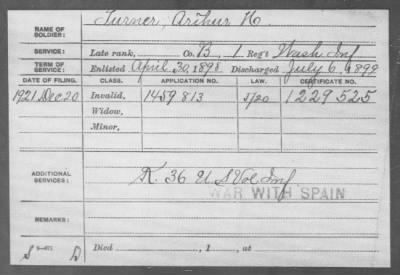 NAME OF SOLDIER: Turner, Arthur H.
SERVICE: Late rank, Co. B, 1 Reg't Wash Inf
TERM OF SERVICE: Enlisted April 30, 1898 Discharged July 6, 1899
DATE OF FILING. CLASS. APPLICATION NO. LAW. CERTIFICATE NO.
1921 Dec 20 Invalid, 1459 813 5/20 1229525
Widow,
Minor,
ADDITIONAL SERVICES: K. 36 U S Vol Inf
WAR WITH SPAIN
REMARKS:
Died , 1 , at